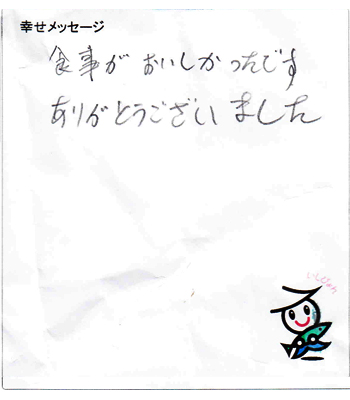 幸せメッセージ
食事が おいしかったです
ありがとうございました